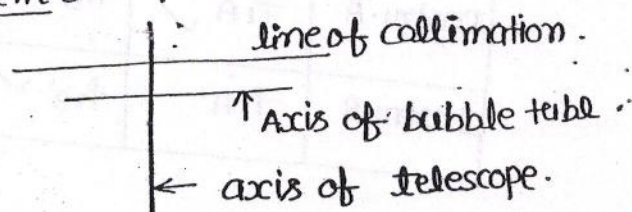 line of callimation.
Axis of bubble tube.
axis of telescope.